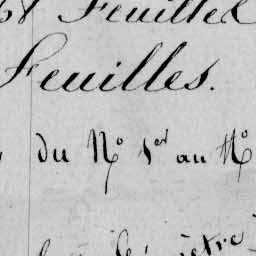 68 Feuillet
Feuilles.
du Nº 1er au Nº